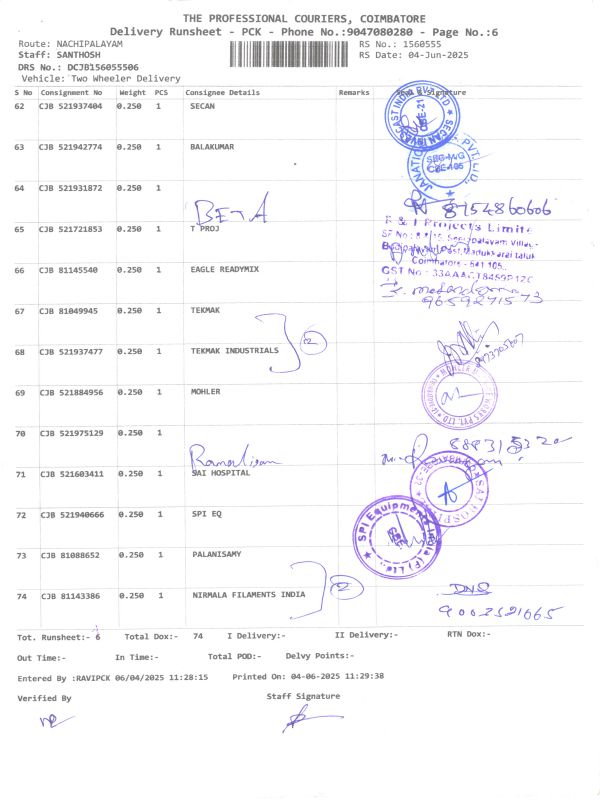 THE PROFESSIONAL COURIERS, COIMBATORE
Delivery Runsheet - PCK - Phone No.:9047080280 - Page No.:6
Route: NACHIPALAYAM RS No.: 1560555
Staff: SANTHOSH RS Date: 04-Jun-2025
DRS No.: DCJB156055506
Vehicle: Two Wheeler Delivery
S No Consignment No Weight PCS Consignee Details Remarks Seal & Signature
62 CJB 521937404 0.250 1 SECAN
63 CJB 521942774 0.250 1 BALAKUMAR
64 CJB 521931872 0.250 1
BETA 8754860606
65 CJB 521721853 0.250 1 T PROJ
66 CJB 81145540 0.250 1 EAGLE READYMIX
9659271573
67 CJB 81049945 0.250 1 TEKMAK
2
68 CJB 521937477 0.250 1 TEKMAK INDUSTRIALS
69 CJB 521884956 0.250 1 MOHLER
70 CJB 521975129 0.250 1
Ramalisam
71 CJB 521603411 0.250 1 SAI HOSPITAL
72 CJB 521940666 0.250 1 SPI EQ
SPI Equipments India (P) Ltd.
CBE
73 CJB 81088652 0.250 1 PALANISAMY
2
74 CJB 81143386 0.250 1 NIRMALA FILAMENTS INDIA
DNS
9002521665
Tot. Runsheet:- 6 Total Dox:- 74 I Delivery:- II Delivery:- RTN Dox:-
Out Time:- In Time:- Total POD:- Delvy Points:-
Entered By :RAVIPCK 06/04/2025 11:28:15 Printed On: 04-06-2025 11:29:38
Verified By Staff Signature